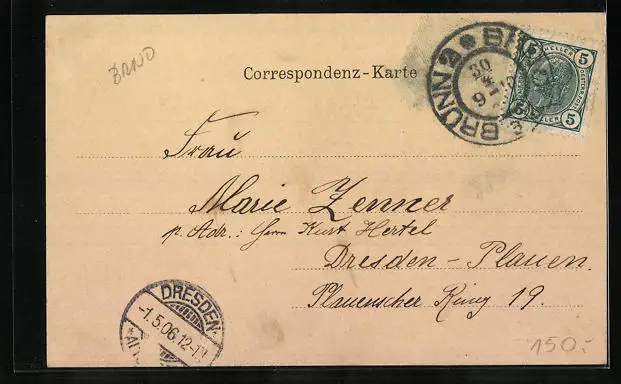 BRNO
Correspondenz-Karte
BRÜNN 2
30
9
5 HELLER 5
5 HELLER 5
Frau
Marie Zenner
p. Adr.: Herrn Kurt Hertel
Dresden-Plauen.
Plauenscher Ring 19.
DRESDEN-
-1.5.06.12-1
150.-